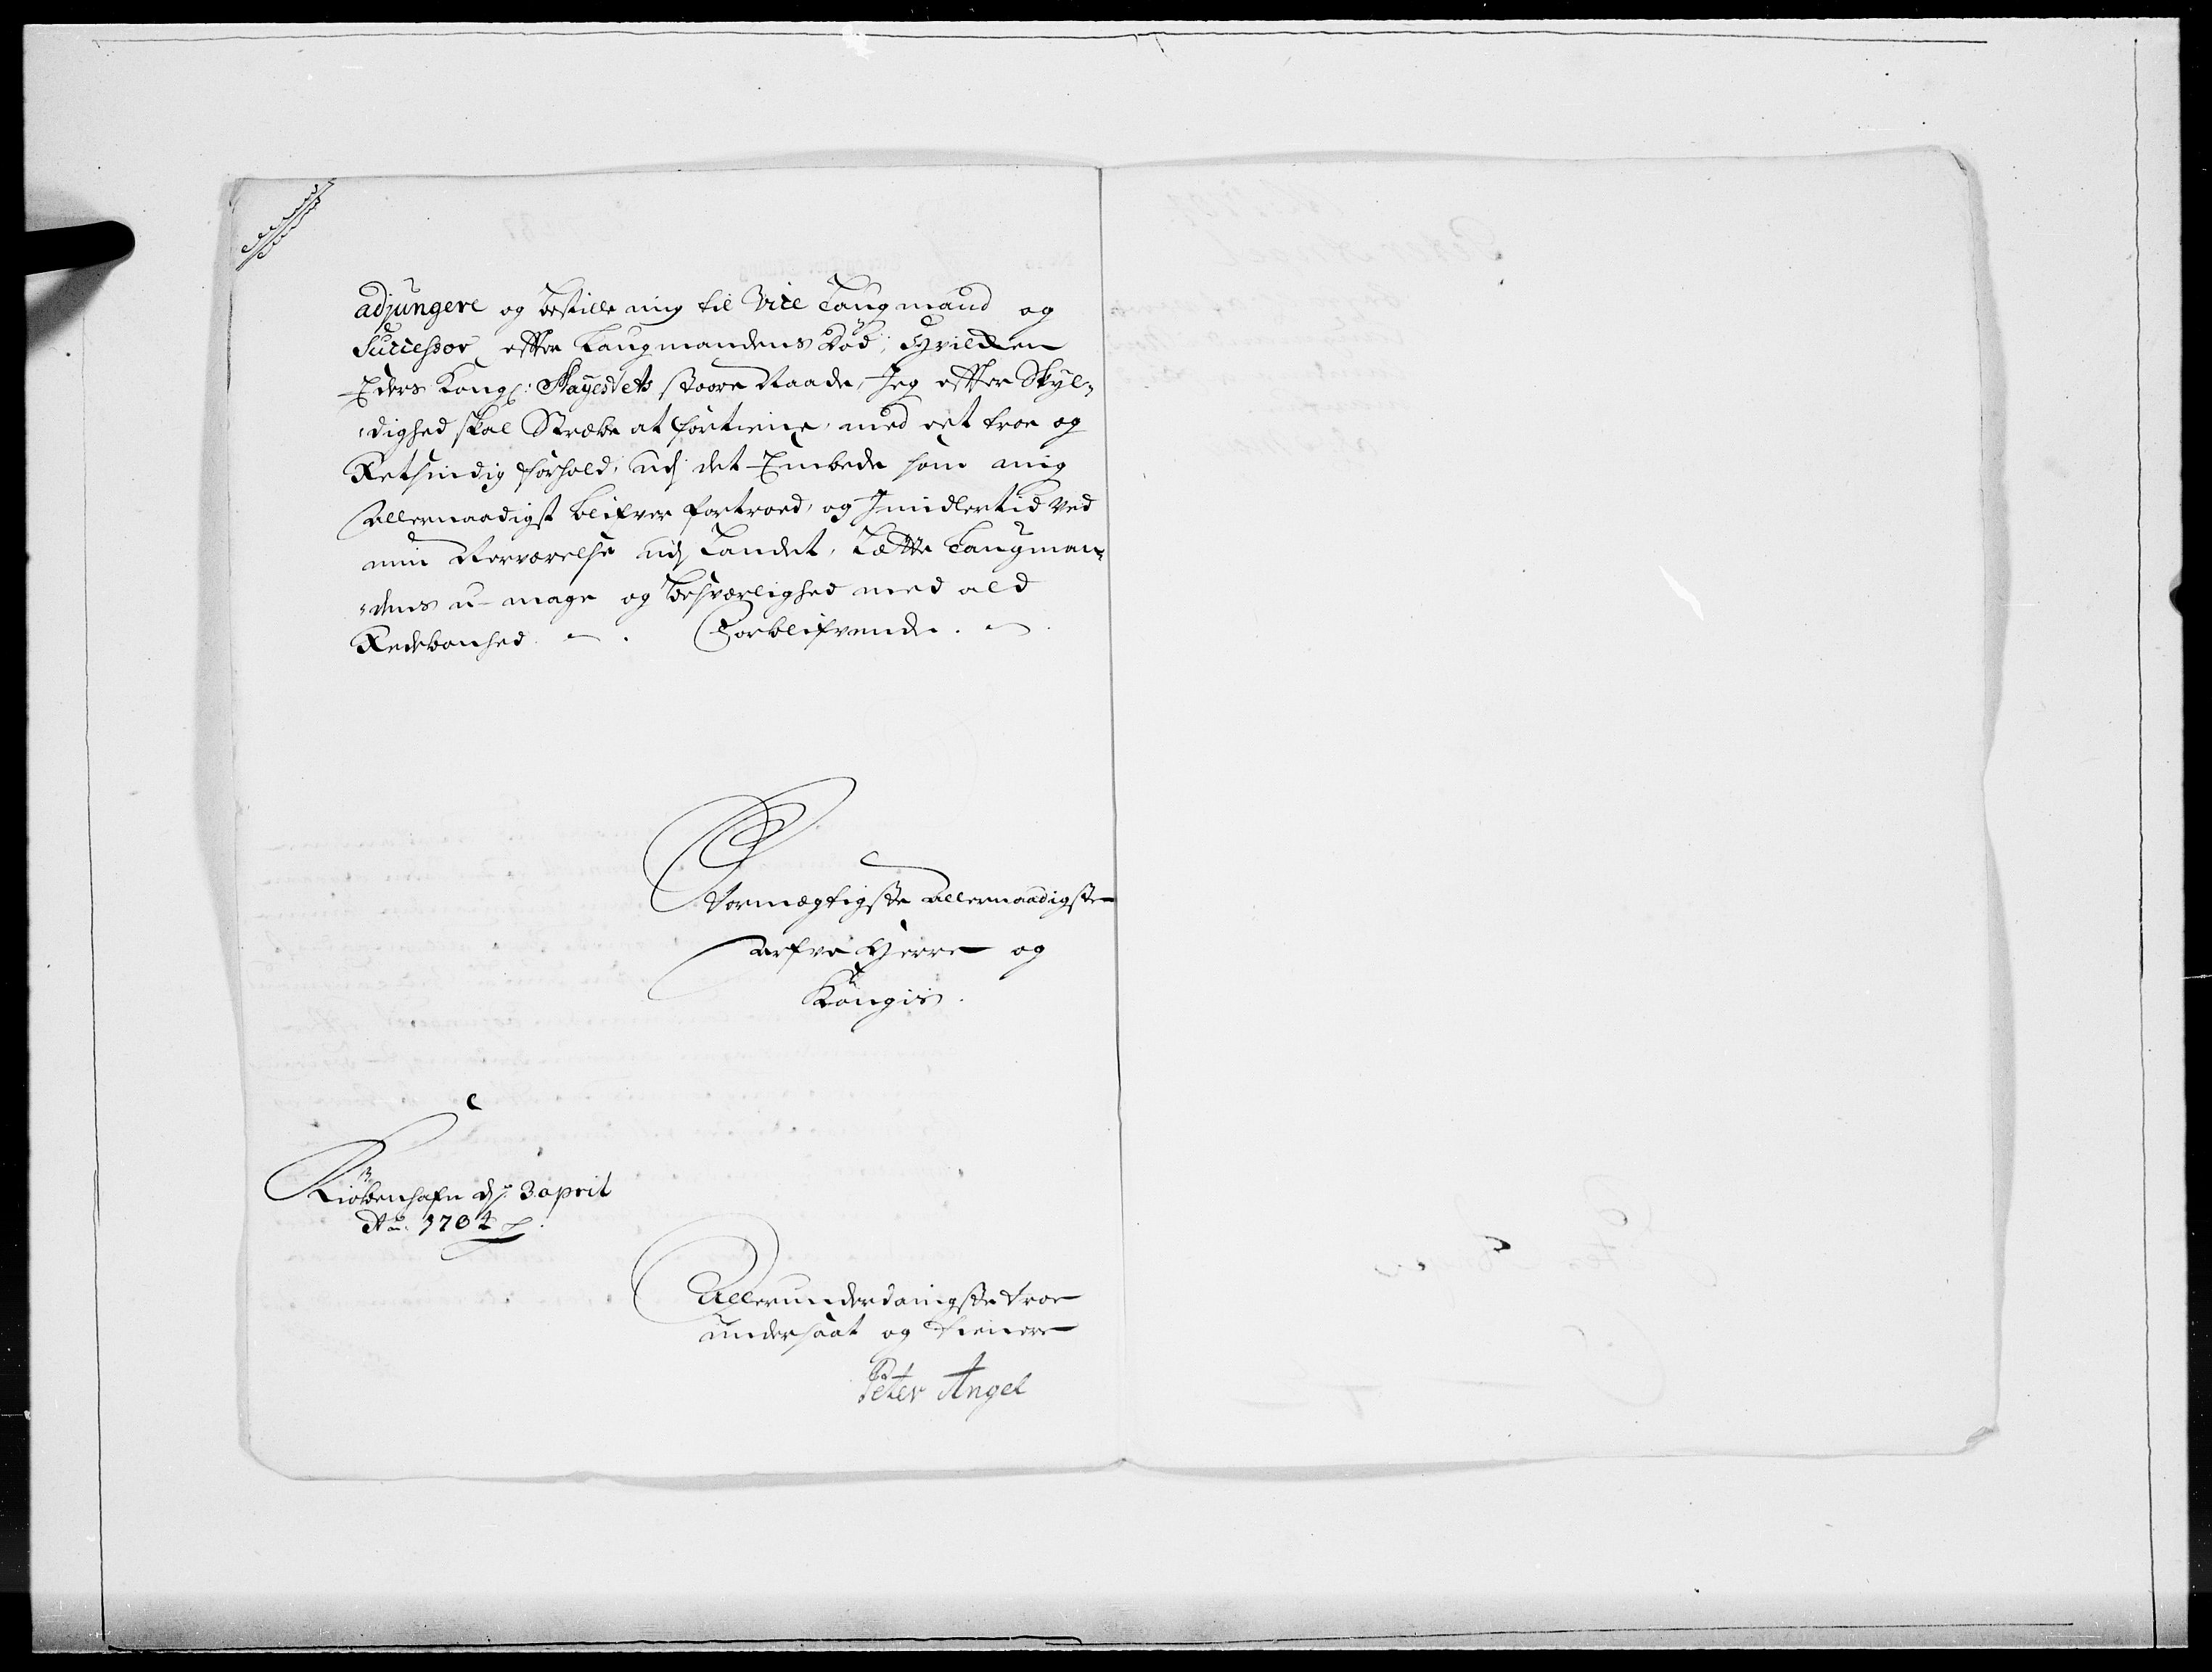 adjungere og bestille mig til Vice Laugmand og
Successor efter Laugmandens Död, Hvilcken
Eders Kongl: Mayestets stoore Naade, Jeg efter Skyl„
„dighed skal Stræbe at fortiene, med ret troe og
Retsindig forhold, udj det Embede som mig
Allernaadigst blifver fortroed, og Jmidlertid ved
min Nerværelse udj Landet, Lætte Laugman„
„dens u-mage og Besværlighed med ald
Redebonhed. Forblifvende.
Stormægtigste Allernaadigste
Arfve Herre og
Kongis.
Kiöbenhafn dj: 3 april
Ao: 1704
Allerunderdanigste troe
undersaat og tienere
Peter Angel